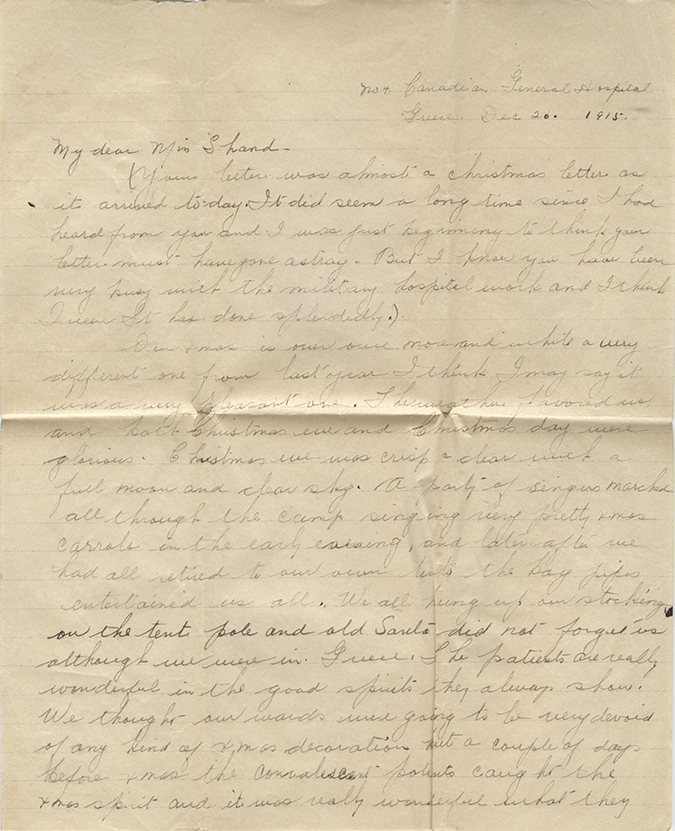 No 4. Canadian General Hospital
Greece. Dec 26. 1915.
My dear Miss Shand -
(Your letter was almost a christmas letter as
it arrived to-day. It did seem a long time since I had
heard from you and I was just beginning to think your
letter must have gone astray. But I know you have been
very busy with the military hospital work and I think
It has done splendidly.)
Our xmas is over once more and while a very
different one from last year I think I may say it
was a very pleasant one. The weather favored us
and both Christmas eve and Christmas day were
glorious. Christmas eve was crisp & clear with a
full moon and clear sky. A party of singers marched
all through the camp singing very pretty xmas
carrols in the early evening, and later after we
had all retired to our own tents the bag pipes
entertained us all. We all hung up our stocking
on the tent pole and old Santa did not forget us
although we were in Greece. The patients are really
wonderful in the good spirits they always show.
We thought our wards were going to be very devoid
of any kind of xmas decoration but a couple of days
before xmas the convalescent patients caught the
xmas spirit and it was really wonderful what they